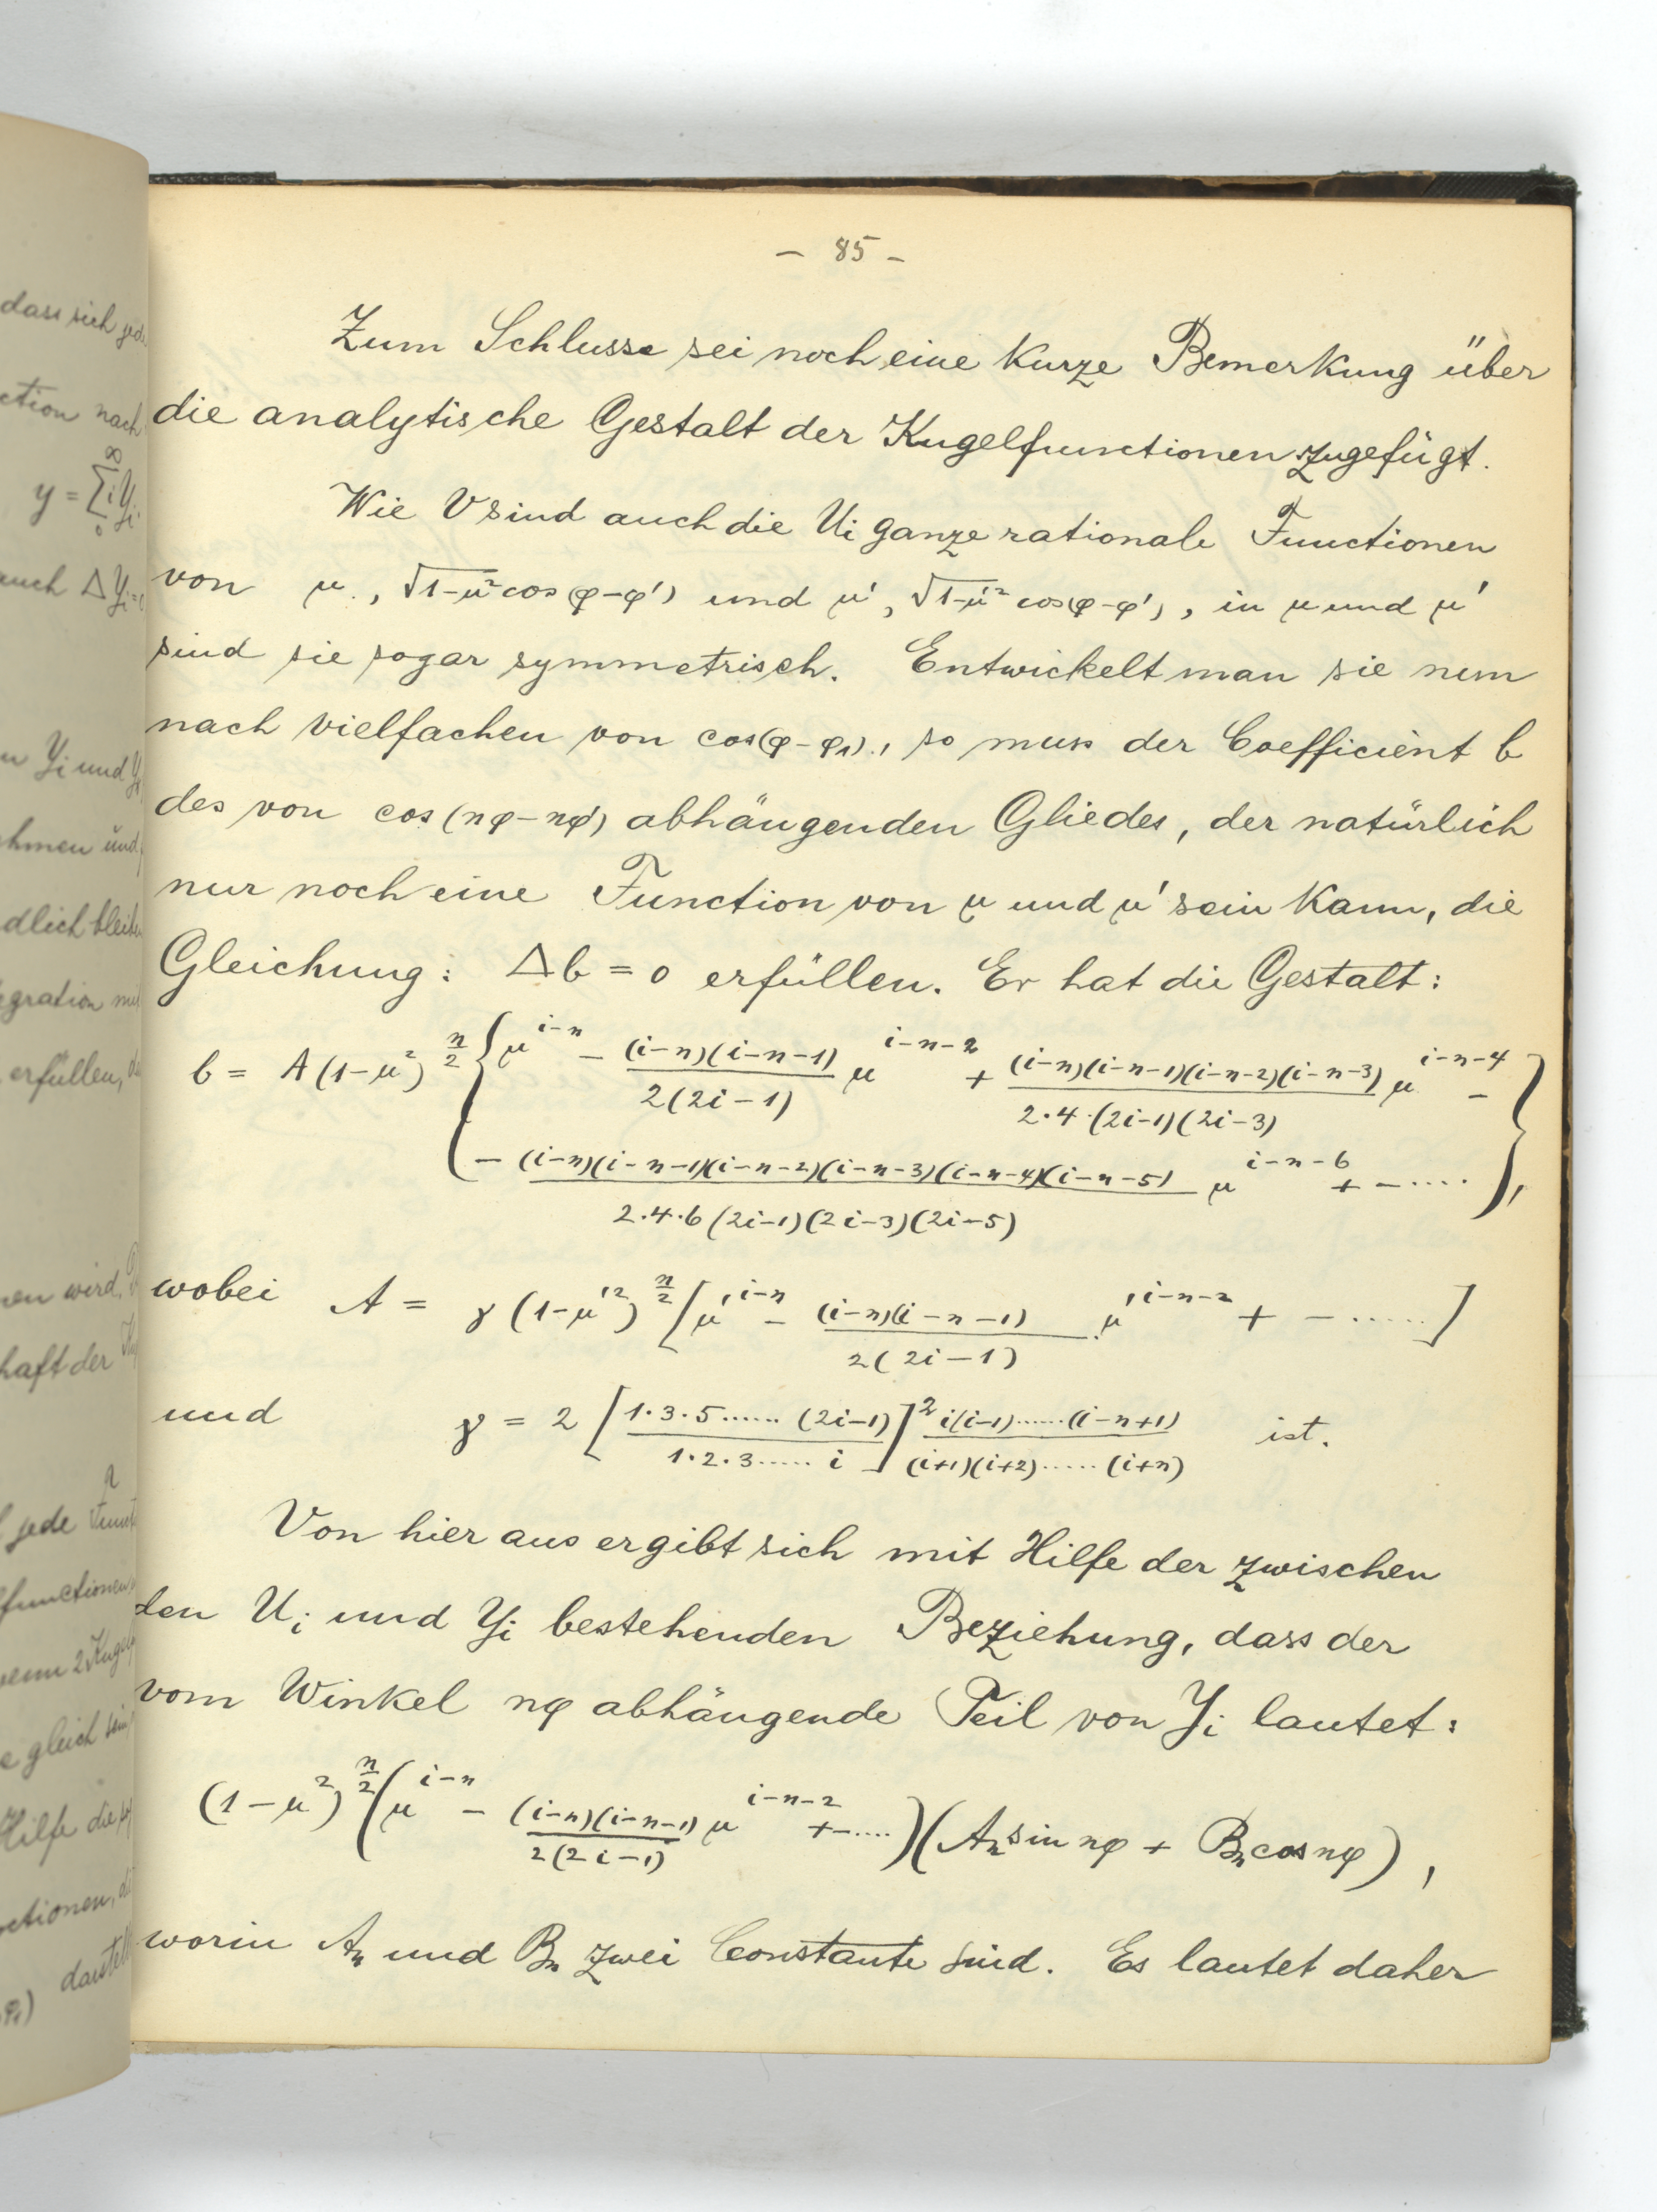 dass sich jed
ction nach
y = ∑ i Yi
∞
0
auch Δ Yi = 0
n Yi und Y
hmen und
dlich bleibe
egration mi
erfüllen, d
en wird,
haft der
jede Funct
functionen
wenn 2 Kugel
e gleich sein
Hilfe die
ctionen, d
φ₁) darstell
– 85 –
Zum Schlusse sei noch eine kurze Bemerkung über
die analytische Gestalt der Kugelfunctionen zugefügt.
Wie V sind auch die Ui ganze rationale Functionen
von μ, √1-μ² cos(φ-φ') und μ', √1-μ'² cos(φ-φ'), in μ und μ'
sind sie sogar symmetrisch. Entwickelt man sie nun
nach vielfachen von cos(φ-φ₁), so muss der Coefficient b
des von cos(nφ-nφ') abhängenden Gliedes, der natürlich
nur noch eine Function von μ und μ' sein kann, die
Gleichung: Δb = 0 erfüllen. Er hat die Gestalt:
b = A(1-μ²)^{n/2} { μ^{i-n} - (i-n)(i-n-1) / 2(2i-1) μ^{i-n-2} + (i-n)(i-n-1)(i-n-2)(i-n-3) / 2·4·(2i-1)(2i-3) μ^{i-n-4} -
- (i-n)(i-n-1)(i-n-2)(i-n-3)(i-n-4)(i-n-5) / 2·4·6(2i-1)(2i-3)(2i-5) μ^{i-n-6} + - ..... },
wobei A = γ(1-μ'²)^{n/2} [ μ'^{i-n} - (i-n)(i-n-1) / 2(2i-1) μ'^{i-n-2} + - ...... ]
und γ = 2 [ 1·3·5......(2i-1) / 1·2·3..... i ]² i(i-1)......(i-n+1) / (i+1)(i+2)......(i+n) ist.
Von hier aus ergibt sich mit Hilfe der zwischen
den Ui und Yi bestehenden Beziehung, dass der
vom Winkel nφ abhängende Teil von Yi lautet:
(1-μ²)^{n/2} ( μ^{i-n} - (i-n)(i-n-1) / 2(2i-1) μ^{i-n-2} + - .... ) (An sin nφ + Bn cos nφ),
worin An und Bn zwei Constante sind. Es lautet daher